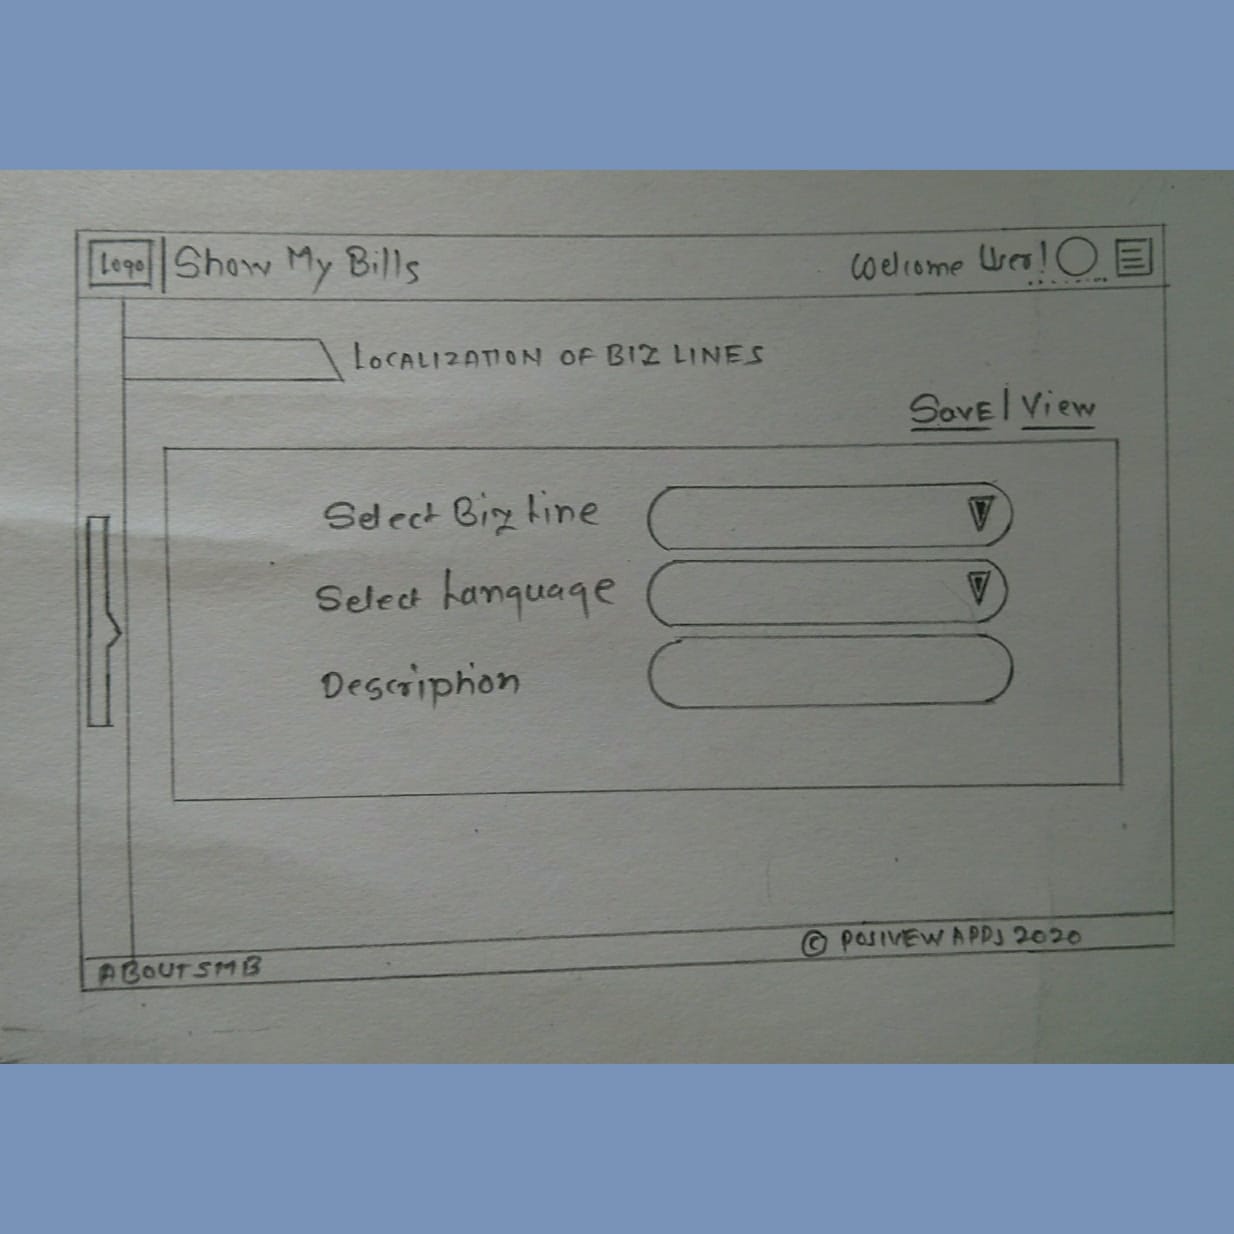 Logo Show My Bills Welcome User!
LOCALIZATION OF BIZ LINES
SAVE | View
Select Biz Line
Select Language
Description
ABOUT SMB © POSIVEW APPS 2020